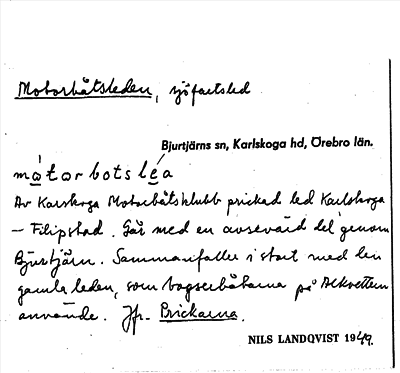 Motorbåtsleden, sjöfartsled
Bjurtjärns sn, Karlskoga hd, Örebro län.
mòtorbotsléa
Av Karlskoga Motorbåtsklubb prickad led Karlskoga
– Filipstad. Går med en avsevärd del genom
Bjurtjärn. Sammanfaller i stort med den
gamla leden, som bogserbåtarna på Alkvettern
använde. Jfr. Prickarna.
NILS LANDQVIST 1949.